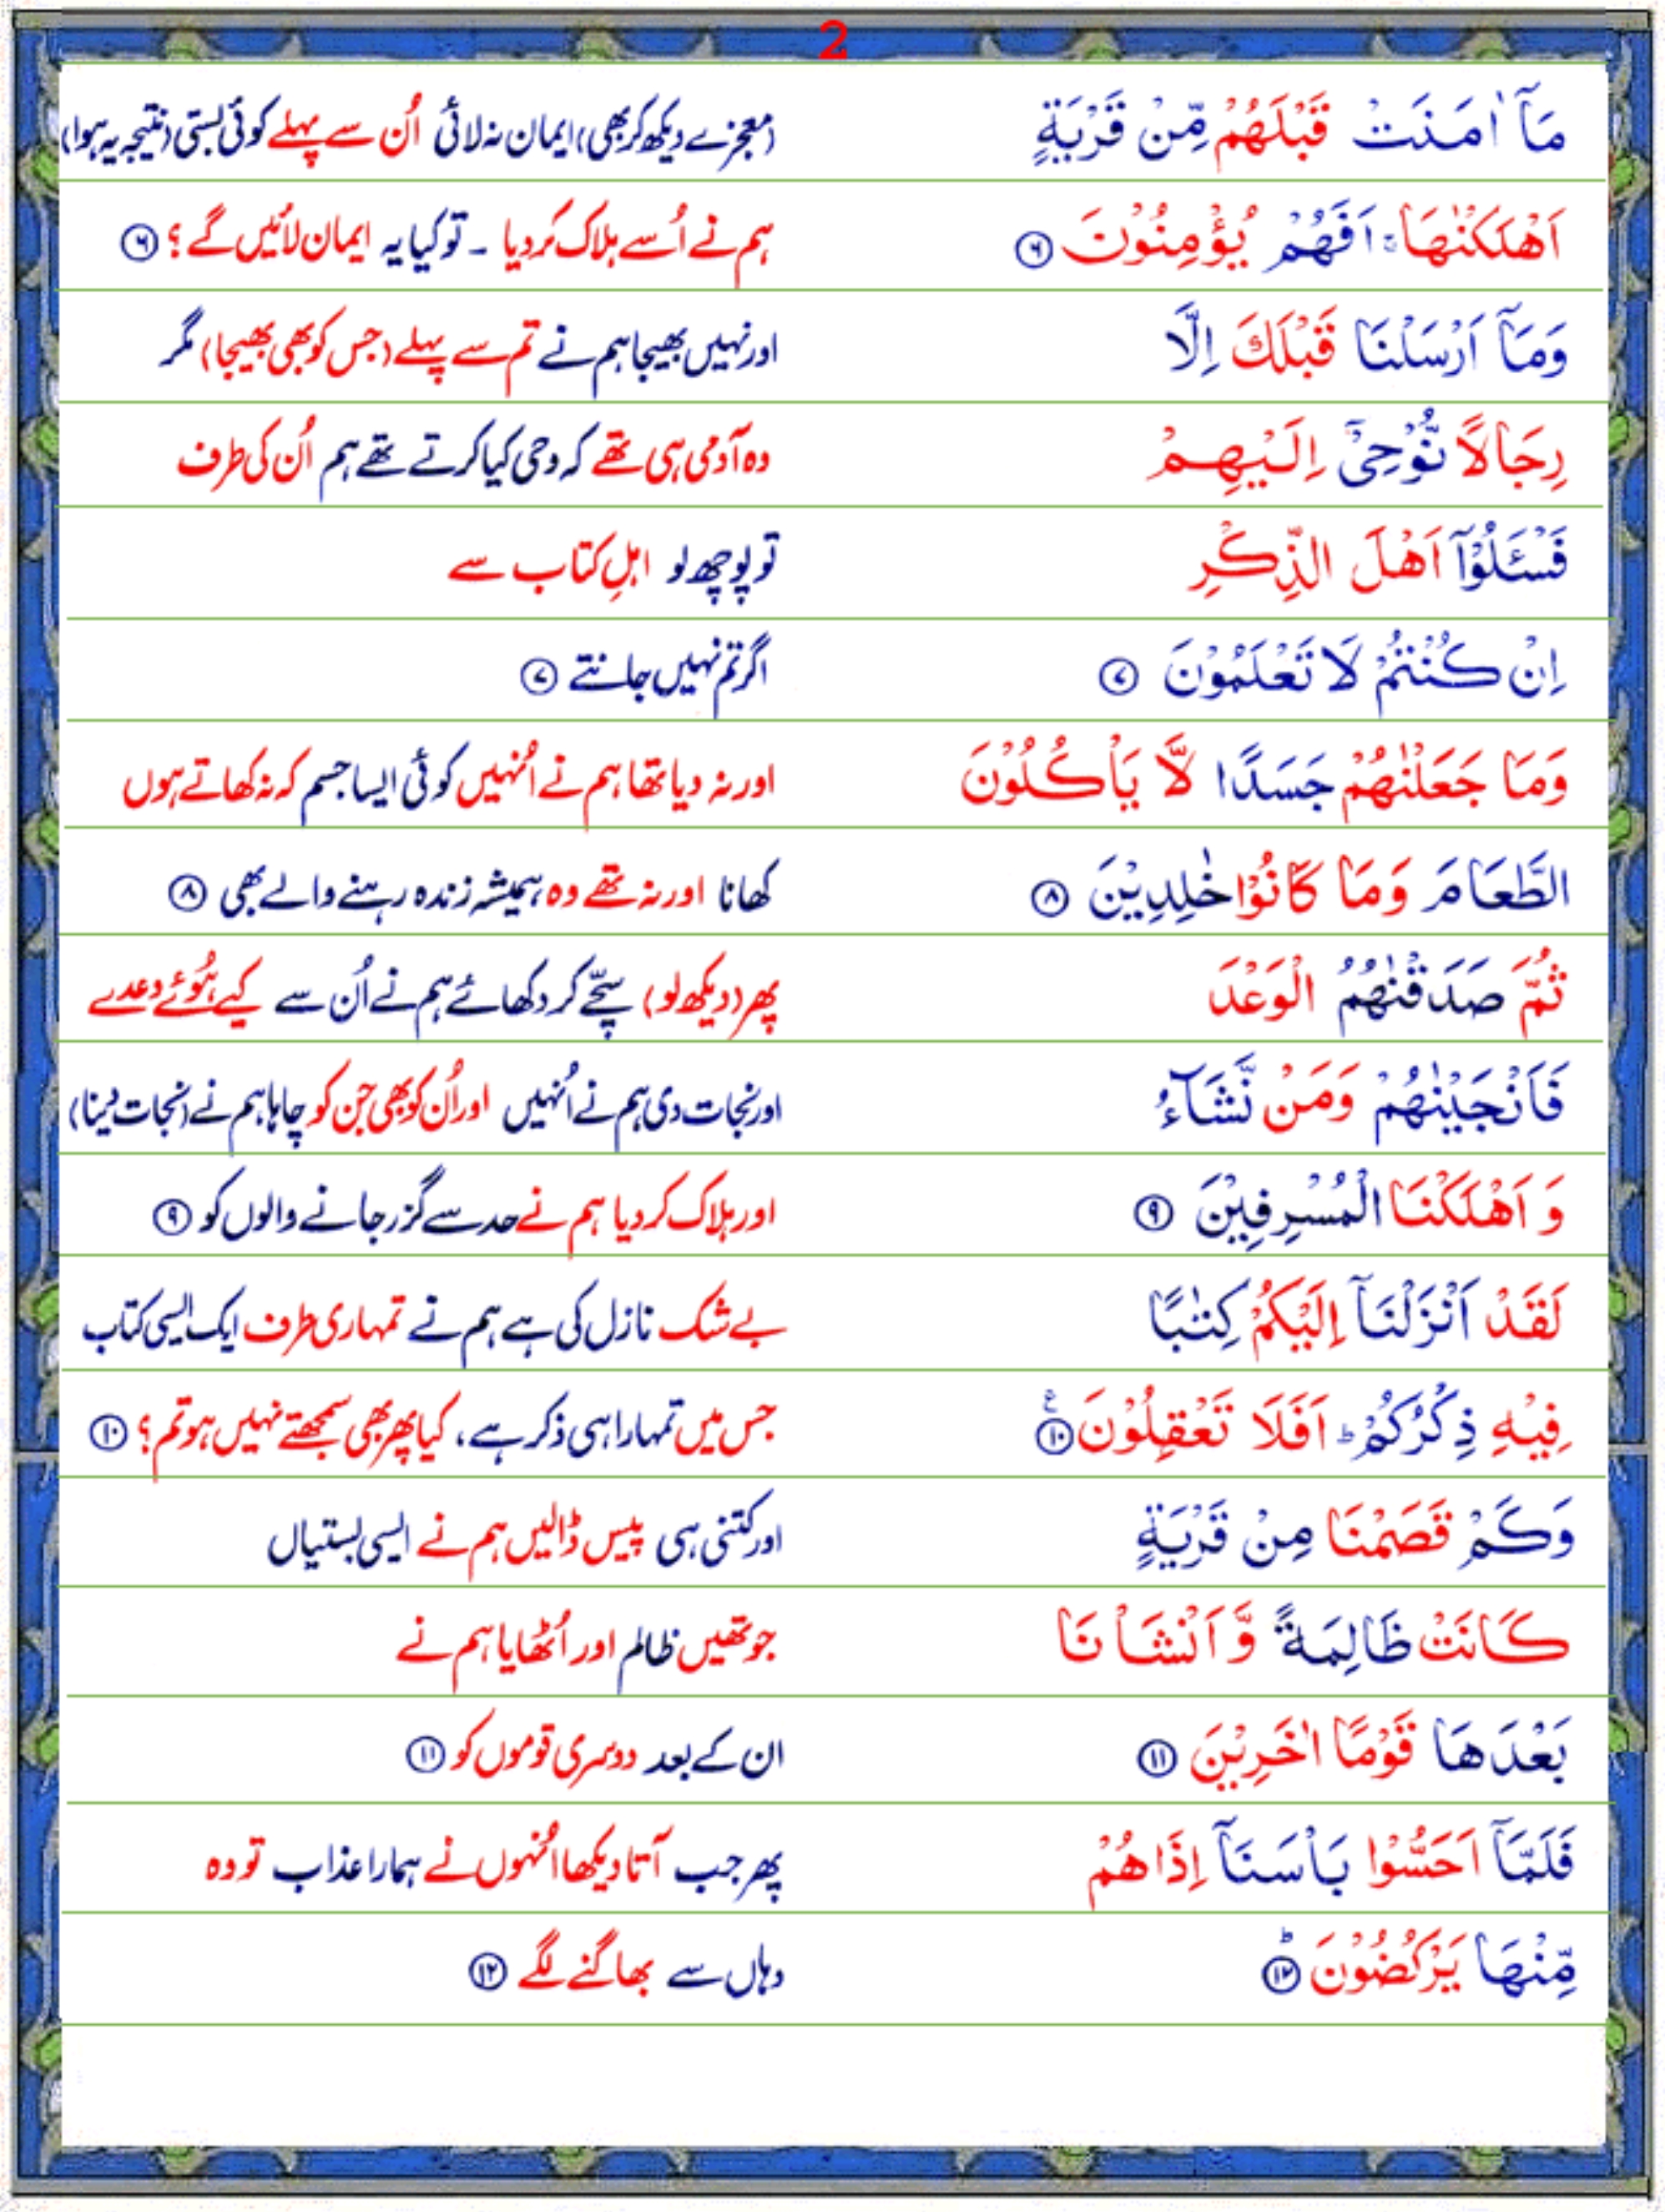 2
مَآ اٰمَنَتْ قَبْلَهُمْ مِّنْ قَرْيَةٍ (معجزے دیکھ کر بھی) ایمان نہ لائی اُن سے پہلے کوئی بستی (نتیجہ یہ ہوا)
اَهْلَكْنٰهَا ۚ اَفَهُمْ يُؤْمِنُوْنَ ۶ ہم نے اُسے ہلاک کر دیا ۔ تو کیا یہ ایمان لائیں گے ؟ ۶
وَمَآ اَرْسَلْنَا قَبْلَكَ اِلَّا اور نہیں بھیجا ہم نے تم سے پہلے (جس کو بھی بھیجا) مگر
رِجَالًا نُّوْحِيْٓ اِلَيْهِمْ وہ آدمی ہی تھے کہ وحی کیا کرتے تھے ہم اُن کی طرف
فَسْـَٔلُوْٓا اَهْلَ الذِّكْرِ تو پوچھ لو اہلِ کتاب سے
اِنْ كُنْتُمْ لَا تَعْلَمُوْنَ ۷ اگر تم نہیں جانتے ۷
وَمَا جَعَلْنٰهُمْ جَسَدًا لَّا يَاْكُلُوْنَ اور نہ دیا تھا ہم نے اُنہیں کوئی ایسا جسم کہ نہ کھاتے ہوں
الطَّعَامَ وَمَا كَانُوْا خٰلِدِيْنَ ۸ کھانا اور نہ تھے وہ ہمیشہ زندہ رہنے والے بھی ۸
ثُمَّ صَدَقْنٰهُمُ الْوَعْدَ پھر (دیکھ لو) سچّے کر دکھائے ہم نے اُن سے کیے ہُوئے وعدے
فَاَنْجَيْنٰهُمْ وَمَنْ نَّشَآءُ اور نجات دی ہم نے اُنہیں اور اُن کو بھی جن کو چاہا ہم نے (نجات دینا)
وَ اَهْلَكْنَا الْمُسْرِفِيْنَ ۹ اور ہلاک کر دیا ہم نے حد سے گزر جانے والوں کو ۹
لَقَدْ اَنْزَلْنَآ اِلَيْكُمْ كِتٰبًا بے شک نازل کی ہے ہم نے تمہاری طرف ایک ایسی کتاب
فِيْهِ ذِكْرُكُمْ ؕ اَفَلَا تَعْقِلُوْنَ ۱۰ ع جس میں تمہارا ہی ذکر ہے، کیا پھر بھی سمجھتے نہیں ہو تم ؟ ۱۰
وَكَمْ قَصَمْنَا مِنْ قَرْيَةٍ اور کتنی ہی پیس ڈالیں ہم نے ایسی بستیاں
كَانَتْ ظَالِمَةً وَّاَنْشَاْنَا جو تھیں ظالم اور اُٹھایا ہم نے
بَعْدَهَا قَوْمًا اٰخَرِيْنَ ۱۱ ان کے بعد دوسری قوموں کو ۱۱
فَلَمَّآ اَحَسُّوْا بَاْسَنَآ اِذَا هُمْ پھر جب آتا دیکھا اُنہوں نے ہمارا عذاب تو وہ
مِّنْهَا يَرْكُضُوْنَ ؕ ۱۲ وہاں سے بھاگنے لگے ۱۲